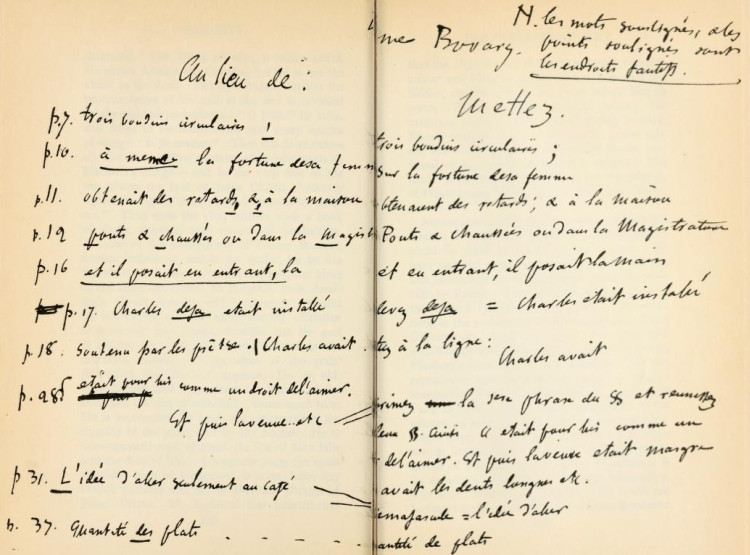 Au lieu de :
p.7. trois boudins circulaires !
p.10. à meme la fortune desa femm
p.11. obtenait des retards, & à la maison
p.12 ponts & chaussés ou dans la magist
p.16 et il posait en entrant, la
p.17. Charles deja etait installé
p.18. soutenu par les prêtre. Charles avait
p. 28 etait pour lui comme un droit del'aimer.
Et puis laveuve..etc
p 31. L'idée d'aller seulement au café
p. 37. Quantité des plats - - - -
me Bovary.
N. les mots soulignés, &les
points soulignés sont
les endroits fautifs.
Mettez.
trois boudins circulaires ;
sur la fortune desa femme
btenaient des retards ; & à la maison
Ponts & chaussées ou dans la Magistrature
et en entrant, il posait la main
levez deja = Charles etait installé
tez à la ligne :
Charles avait
primez la phrase du § et reunissez
§. ainsi etait pour lui comme un
del'aimer. Et puis laveuve etait maigre
avait les dents longues etc.
= l'idée d'aller
antité de plats